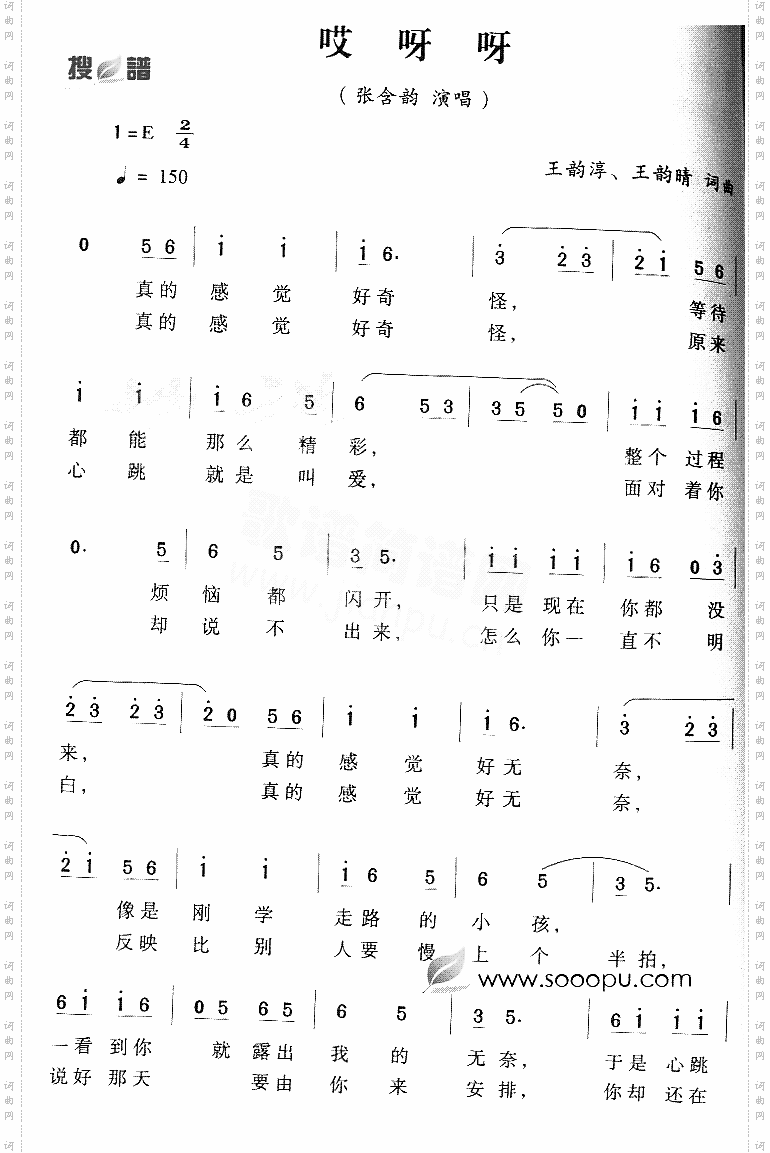 哎 呀 呀
搜 譜
（张含韵 演唱）
1=E 2/4
♩ = 150
王韵淳、王韵晴 词曲
0 5 6 | i i | i 6. | 3̇ 2̇ 3̇ | 2̇ i 5 6 |
真的 感 觉 好奇 怪， 等待
真的 感 觉 好奇 怪， 原来
i i | i 6 5 | 6 5 3 | 3 5 5 0 | i i i 6
都 能 那么 精 彩， 整个 过程
心 跳 就是 叫 爱， 面对 着你
0. 5 | 6 5 | 3 5. | i i i i | i 6 0 3̇ |
烦 恼 都 闪开， 只是 现在 你都 没
却 说 不 出来， 怎么 你一 直不 明
2̇ 3̇ 2̇ 3̇ | 2̇ 0 5 6 | i i | i 6. | 3̇ 2̇ 3̇ |
来， 真的 感 觉 好无 奈，
白， 真的 感 觉 好无 奈，
2̇ i 5 6 | i i | i 6 5 | 6 5 | 3 5. |
像是 刚 学 走路 的 小 孩，
反映 比 别 人要 慢 上 个 半拍，
www.sooopu.com
6 i i 6 | 0 5 6 5 | 6 5 | 3 5. | 6 i i i |
一看 到你 就 露出 我 的 无奈， 于是 心跳
说好 那天 要由 你 来 安排， 你却 还在
歌谱简谱网
www.jianpu.cn
词曲网